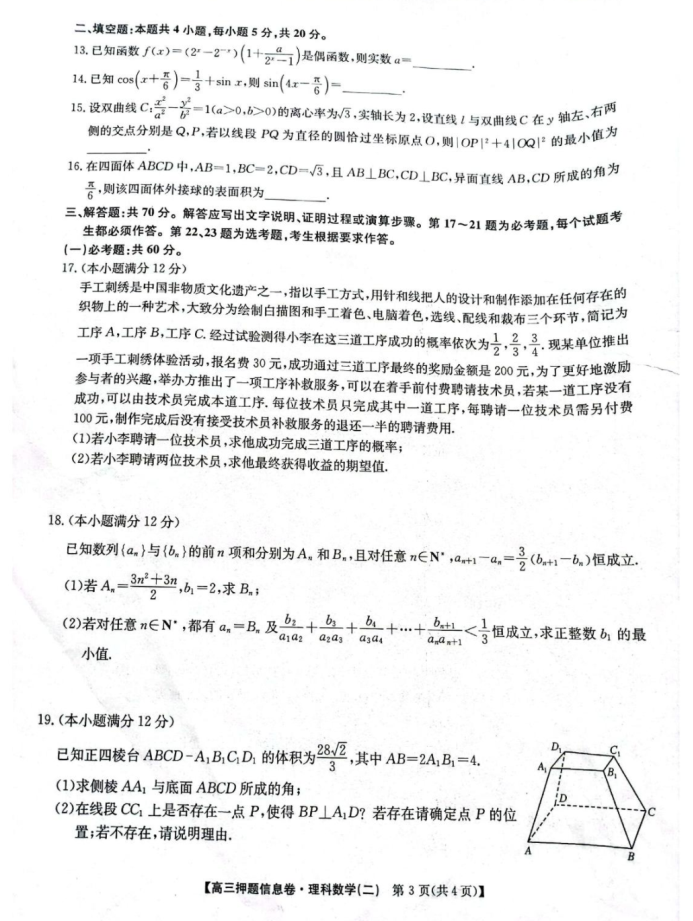 二、填空题:本题共 4 小题,每小题 5 分,共 20 分。
13. 已知函数 f(x)=(2^x-2^{-x})(1+\frac{a}{2^x-1})是偶函数,则实数 a=________
14. 已知 cos(x+\frac{π}{6})=\frac{1}{3}+sin x,则 sin(4x-\frac{π}{6})=________
15. 设双曲线 C:\frac{x^2}{a^2}-\frac{y^2}{b^2}=1(a>0,b>0)的离心率为√3,实轴长为 2,设直线 l 与双曲线 C 在 y 轴左、右两
侧的交点分别是 Q,P,若以线段 PQ 为直径的圆恰过坐标原点 O,则|OP|^2+4|OQ|^2 的最小值为
________.
16. 在四面体 ABCD 中,AB=1,BC=2,CD=√3,且 AB⊥BC,CD⊥BC,异面直线 AB,CD 所成的角为
\frac{π}{6},则该四面体外接球的表面积为________
三、解答题:共 70 分。解答应写出文字说明、证明过程或演算步骤。第 17~21 题为必考题,每个试题考
生都必须作答。第 22、23 题为选考题,考生根据要求作答。
(一)必考题:共 60 分。
17. (本小题满分 12 分)
手工刺绣是中国非物质文化遗产之一,指以手工方式,用针和线把人的设计和制作添加在任何存在的
织物上的一种艺术,大致分为绘制白描图和手工着色、电脑着色,选线、配线和裁布三个环节,简记为
工序 A,工序 B,工序 C. 经过试验测得小李在这三道工序成功的概率依次为\frac{1}{2},\frac{2}{3},\frac{3}{4}. 现某单位推出
一项手工刺绣体验活动,报名费 30 元,成功通过三道工序最终的奖励金额是 200 元,为了更好地激励
参与者的兴趣,举办方推出了一项工序补救服务,可以在着手前付费聘请技术员,若某一道工序没有
成功,可以由技术员完成本道工序. 每位技术员只完成其中一道工序,每聘请一位技术员需另付费
100 元,制作完成后没有接受技术员补救服务的退还一半的聘请费用.
(1)若小李聘请一位技术员,求他成功完成三道工序的概率;
(2)若小李聘请两位技术员,求他最终获得收益的期望值.
18. (本小题满分 12 分)
已知数列{a_n}与{b_n}的前 n 项和分别为 A_n 和 B_n,且对任意 n∈N^*,a_{n+1}-a_n=\frac{3}{2}(b_{n+1}-b_n)恒成立.
(1)若 A_n=\frac{3n^2+3n}{2},b_1=2,求 B_n;
(2)若对任意 n∈N^*,都有 a_n=B_n 及\frac{b_2}{a_1a_2}+\frac{b_3}{a_2a_3}+\frac{b_4}{a_3a_4}+…+\frac{b_{n+1}}{a_na_{n+1}}<\frac{1}{3}恒成立,求正整数 b_1 的最
小值.
19. (本小题满分 12 分)
已知正四棱台 ABCD-A_1B_1C_1D_1 的体积为\frac{28√2}{3},其中 AB=2A_1B_1=4.
(1)求侧棱 AA_1 与底面 ABCD 所成的角;
(2)在线段 CC_1 上是否存在一点 P,使得 BP⊥A_1D? 若存在请确定点 P 的位
置;若不存在,请说明理由.
D_1
C_1
A_1
B_1
D
C
A
B
【高三押题信息卷·理科数学(二) 第 3 页(共 4 页)】